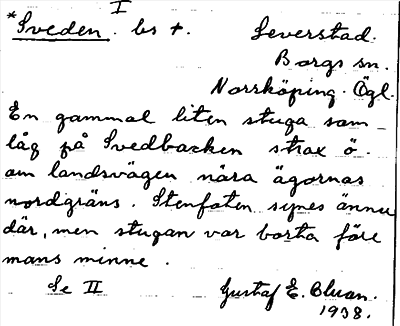 I
*Sveden. bs +. Leverstad.
Borgs sn.
Norrköping. Ögl.
En gammal liten stuga som
låg på Svedbacken strax ö.
om landsvägen nära ägornas
nordgräns. Stenfoten synes ännu
där, men stugan var borta före
mans minne.
Se II Gustaf E. Bluan.
1938.